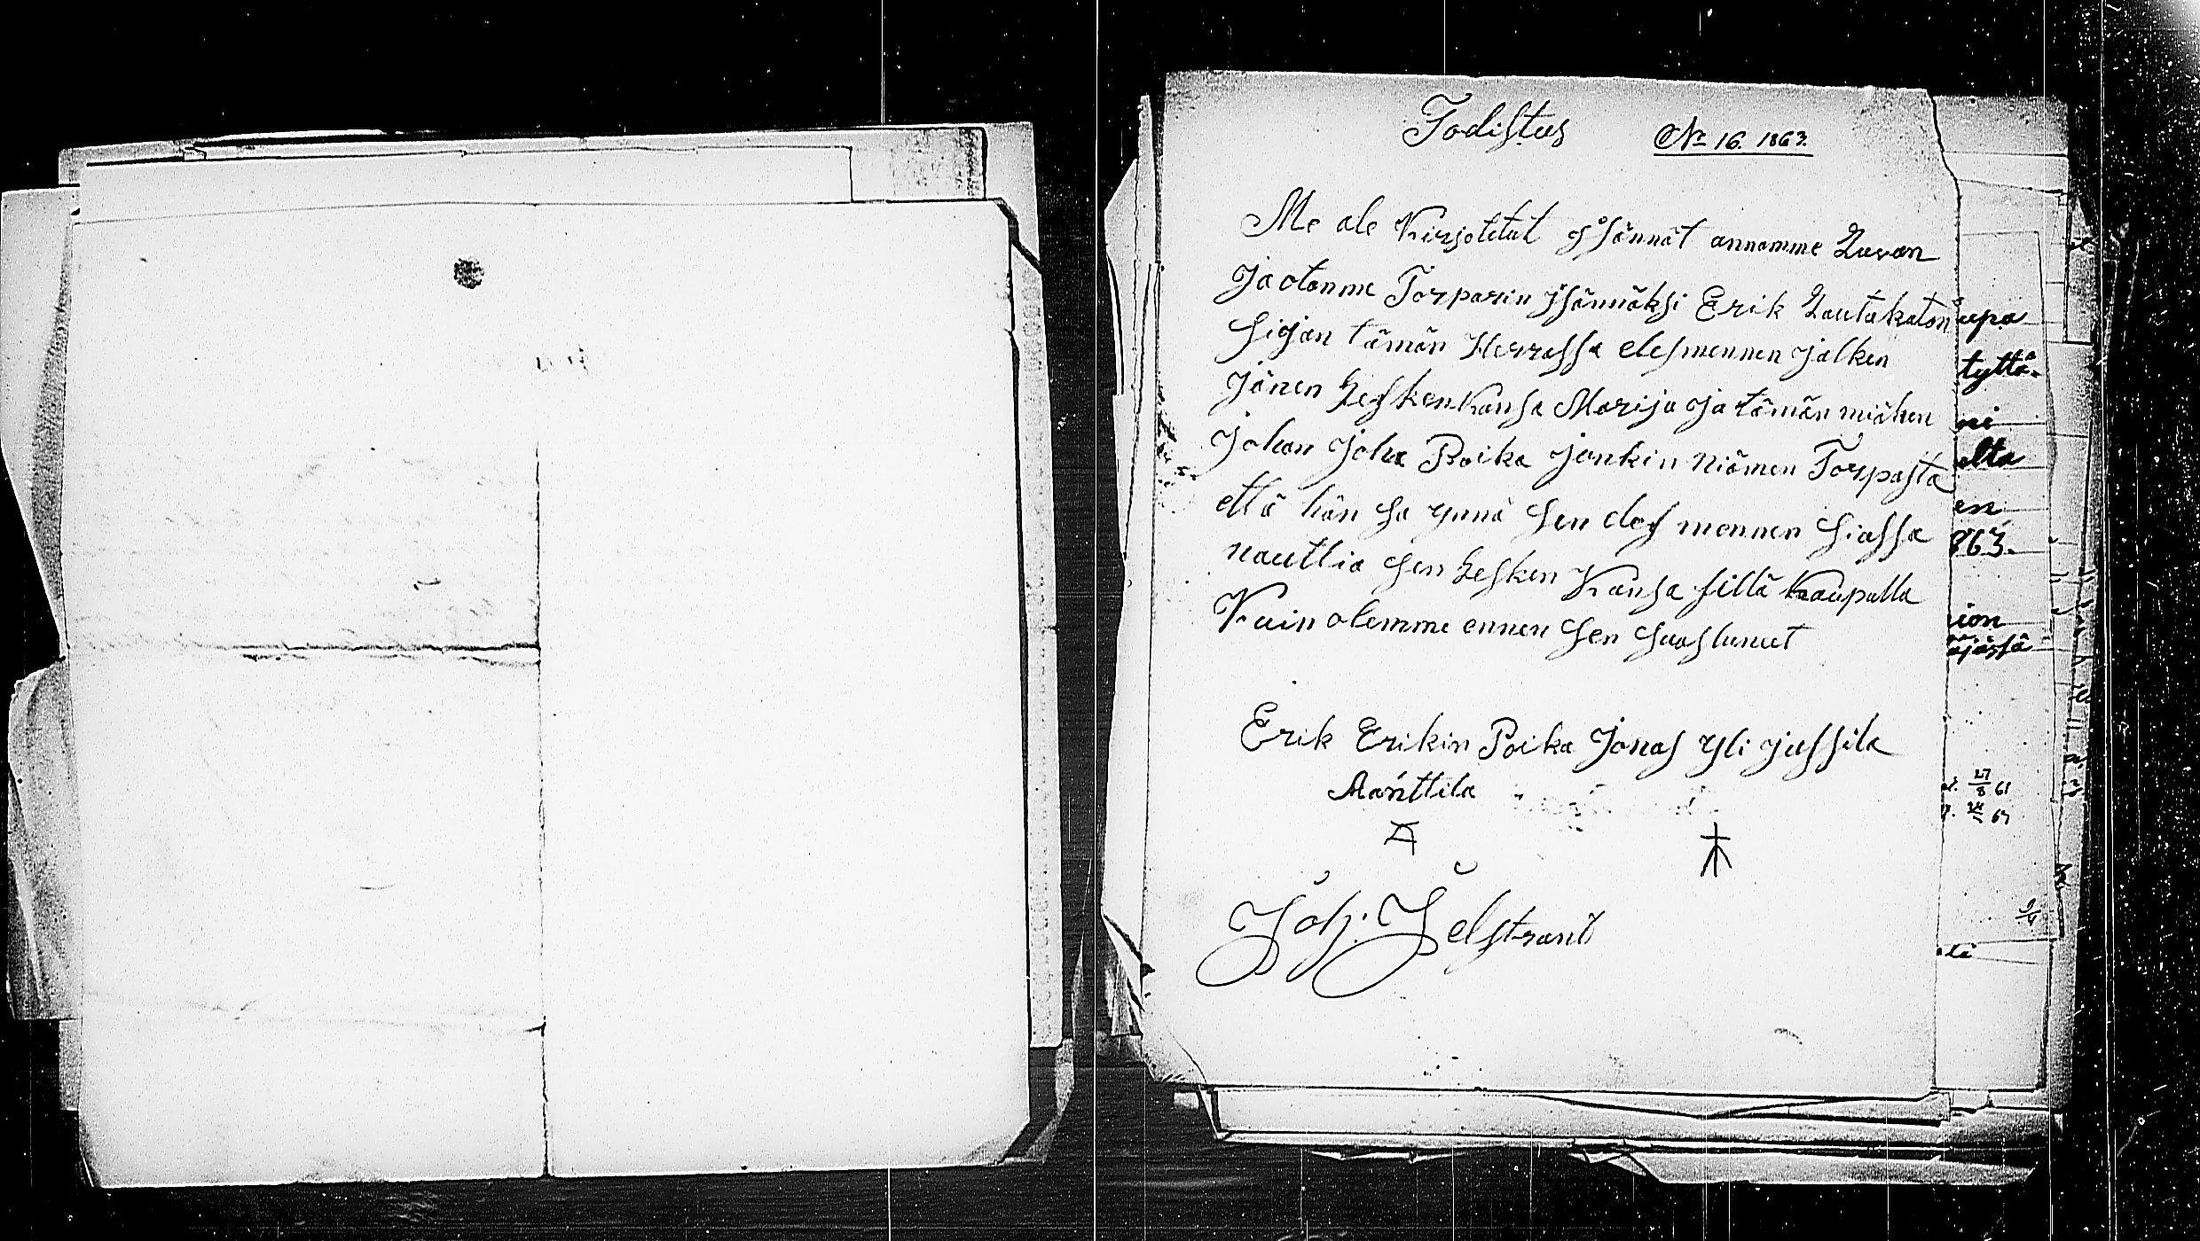 Todistus
No 16. 1863.
Me ale Kirjotetut jsännät annamme Luvan
ja otamme Torparin jsännäksi Erik Lautakaton
sijan tämän Herrassa eles mennen jälken
jänen Lesken Kansa Marija ja tämän miähen
Johan Joha Poika Jonkin niämen Torpasta
että hän sa ynnä sen doss mennen siassa
nauttia sen Lesken Kansa sillä kaupalla
Kuin olemme ennen sen suastunut
Erik Erikin Poika Jonas yli jussila
Mänttila
Joh. Jelstrant
upa
tyttä.
ni
elta
en
863.
ion
27/8 61